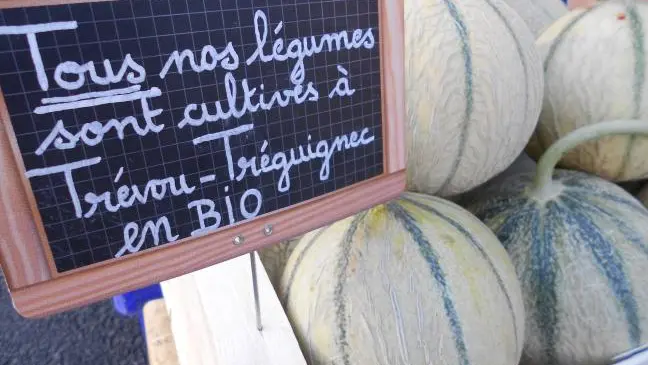 Tous nos légumes
sont cultivés à
Trévou-Tréguignec
en BIO